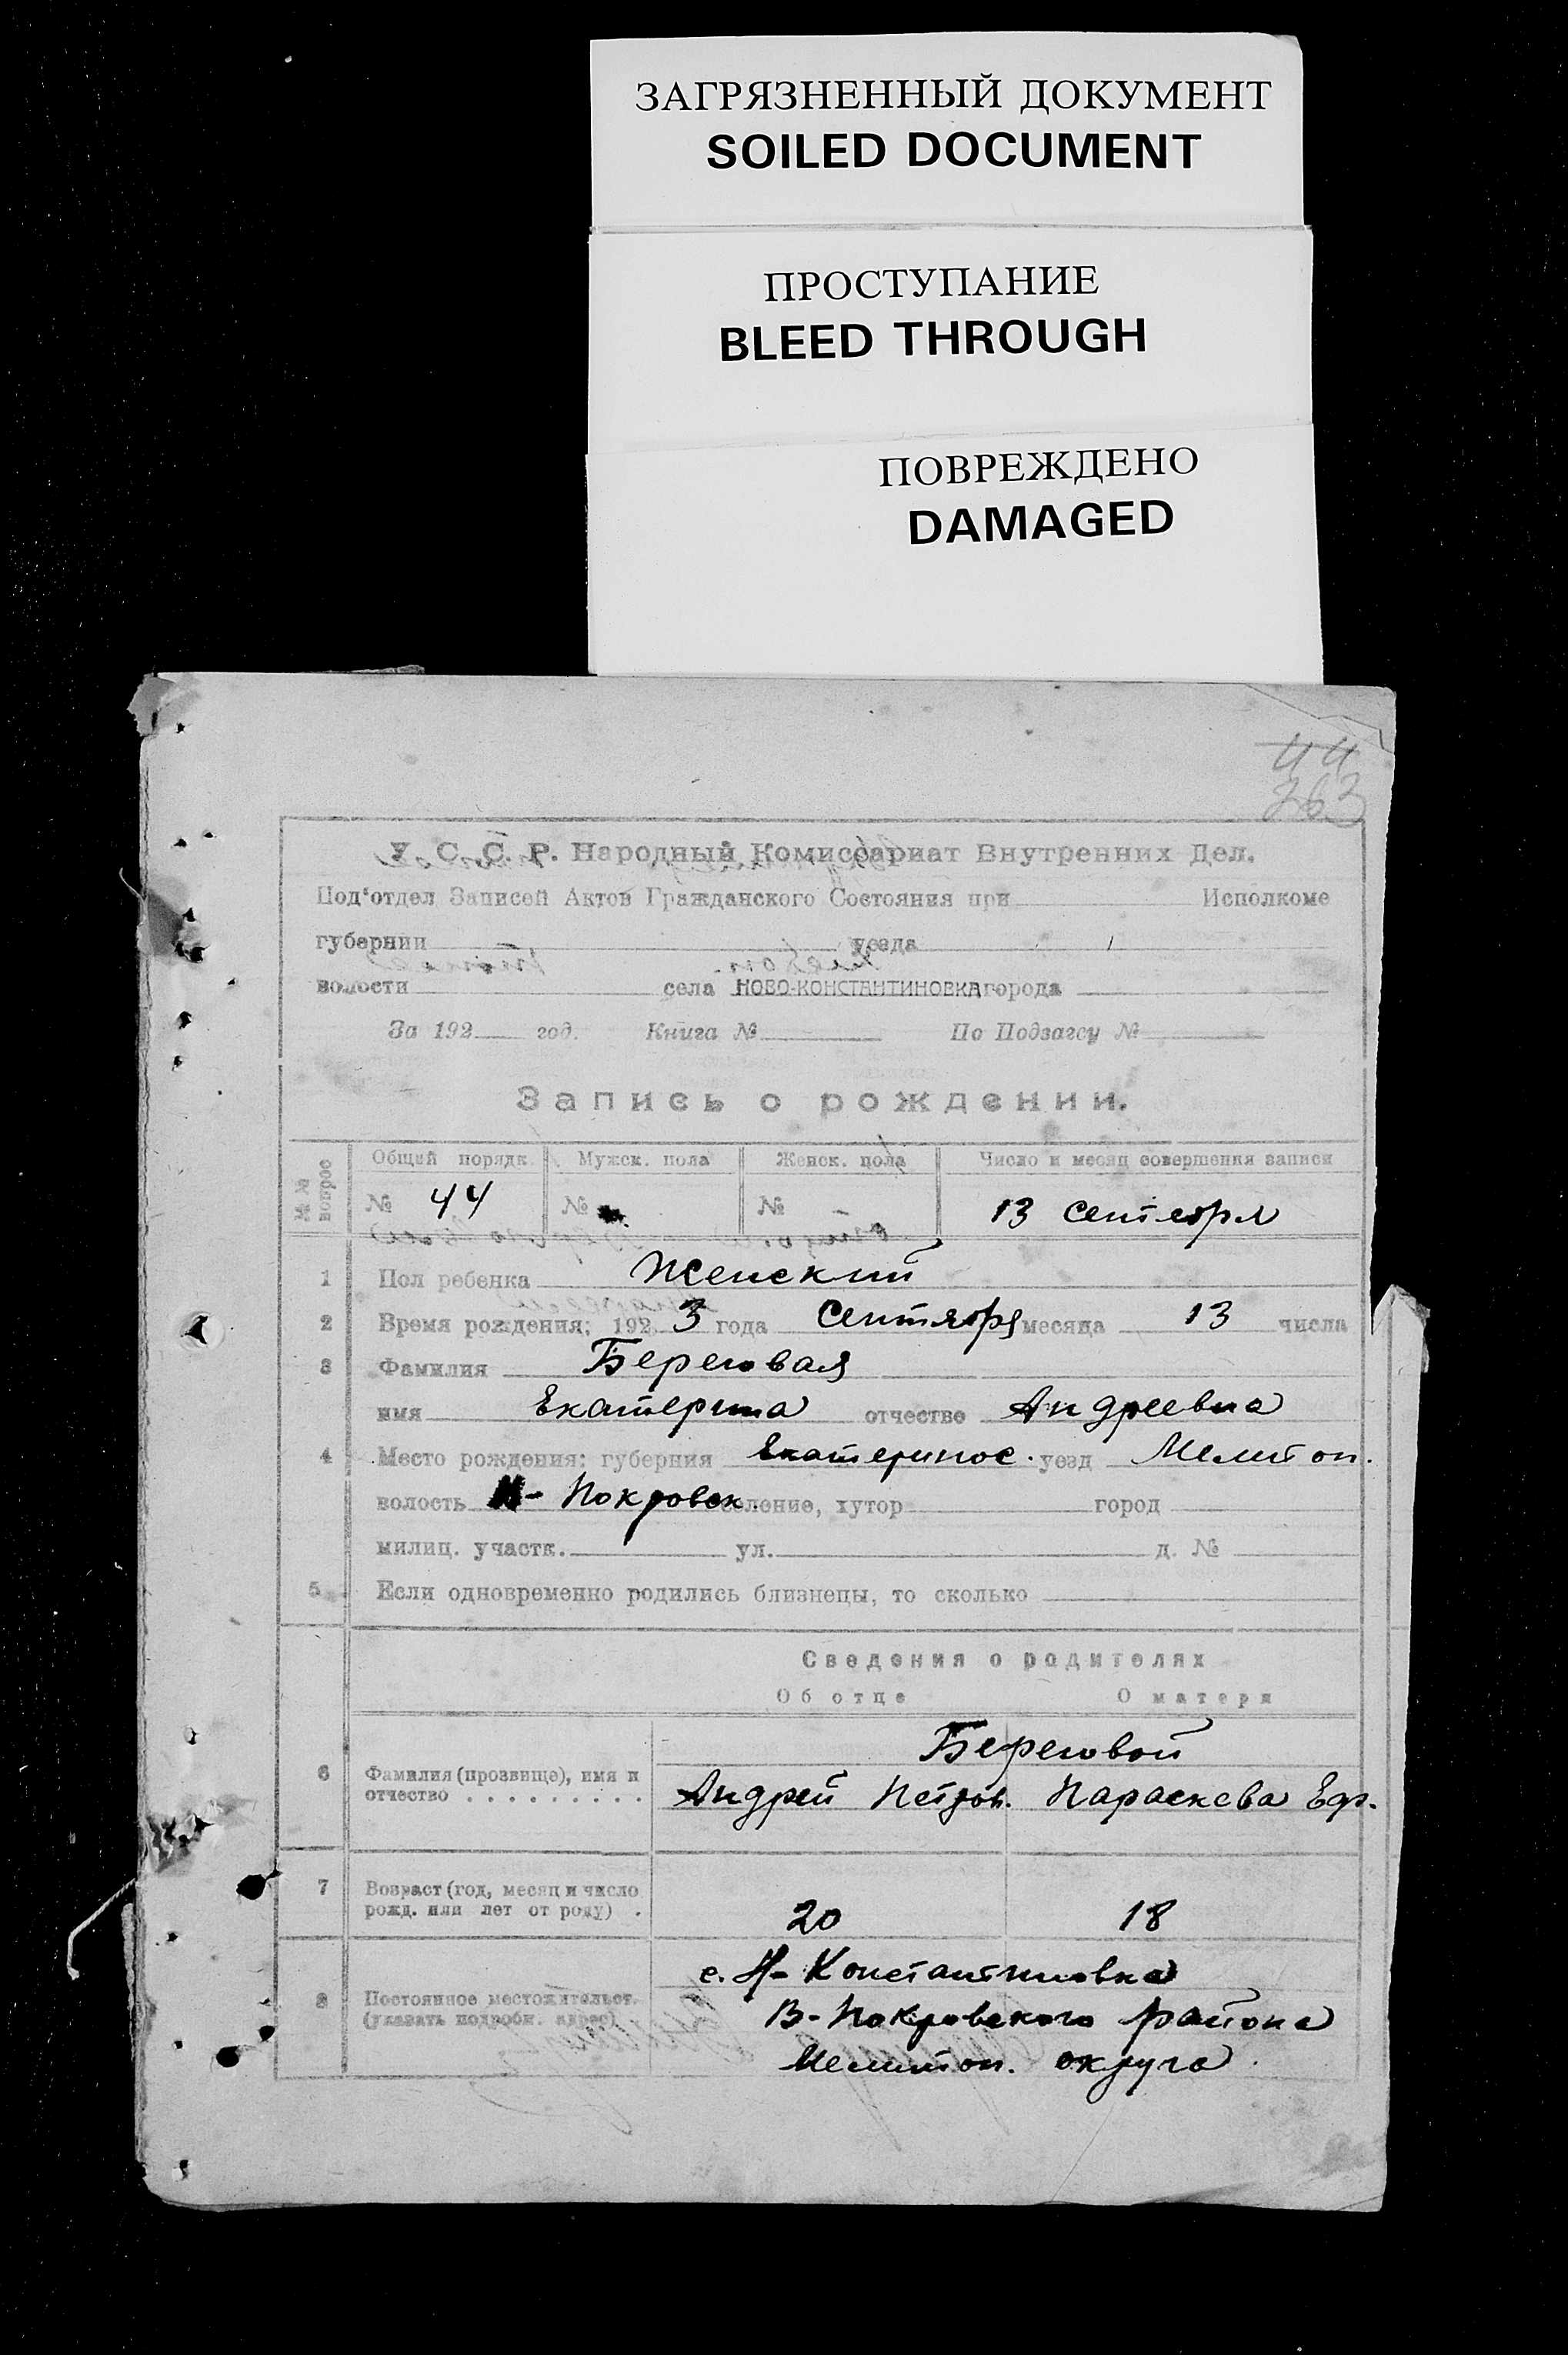 ЗАГРЯЗНЕННЫЙ ДОКУМЕНТ
SOILED DOCUMENT
ПРОСТУПАНИЕ
BLEED THROUGH
ПОВРЕЖДЕНО
DAMAGED
44
263
У. С. С. Р. Народный Комиссариат Внутренних Дел.
Под'отдел Записей Актов Гражданского Состояния при Исполкоме
губернии уезда
волости села НОВО-КОНСТАНТИНОВКА города
За 192 год. Книга № По Подзагсу №
Запись о рождении.
№№ вопрос Общий порядк. Мужск. пола Женск. пола Число и месяц совершения записи
№ 44 № № - 13 сентября
1 Пол ребенка Женский
2 Время рождения: 192 3 года Сентября месяца 13 числа
3 Фамилия Береговая
имя Екатерина отчество Андреевна
4 Место рождения: губерния Екатеринос. уезд Мелитоп.
волость - Покровск. селение, хутор город
милиц. участк. ул. д. №
5 Если одновременно родились близнецы, то сколько
Сведения о родителях
Об отце О матери
Береговой
6 Фамилия (прозвище), имя и
отчество . . . . . . . . . Андрей Петров. Параскева Ефр.
7 Возраст (год, месяц и число
рожд. или лет от роду) . 20 18
с. Н-Константиновка
8 Постоянное местожительст.
(указать подробн. адрес) В-Покровского района
Мелитоп. округа